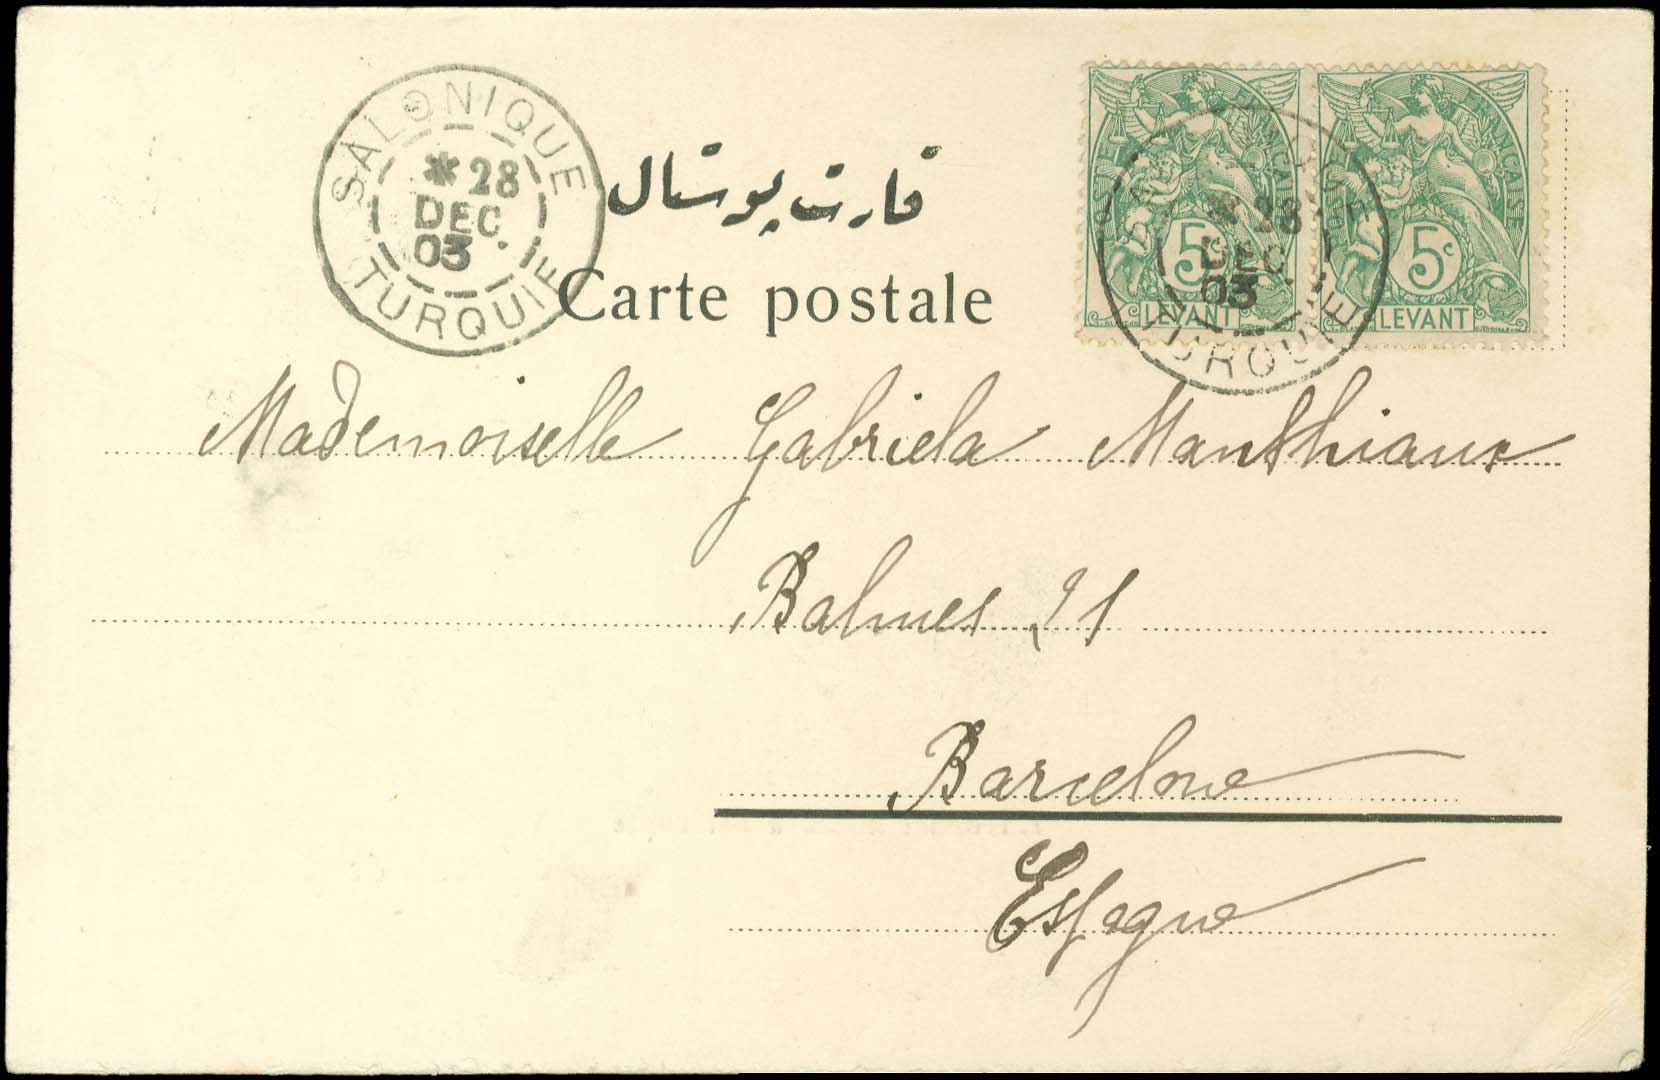 SALONIQUE
* 28
DEC.
03
TURQUIE
قارت پوستال
Carte postale
RÉPUBLIQUE FRANÇAISE
5c
LEVANT
5c
LEVANT
* 28
DEC.
03
TURQUIE
Mademoiselle Gabriela Manthiaux
Balmes, 91
Barcelone
Espagne